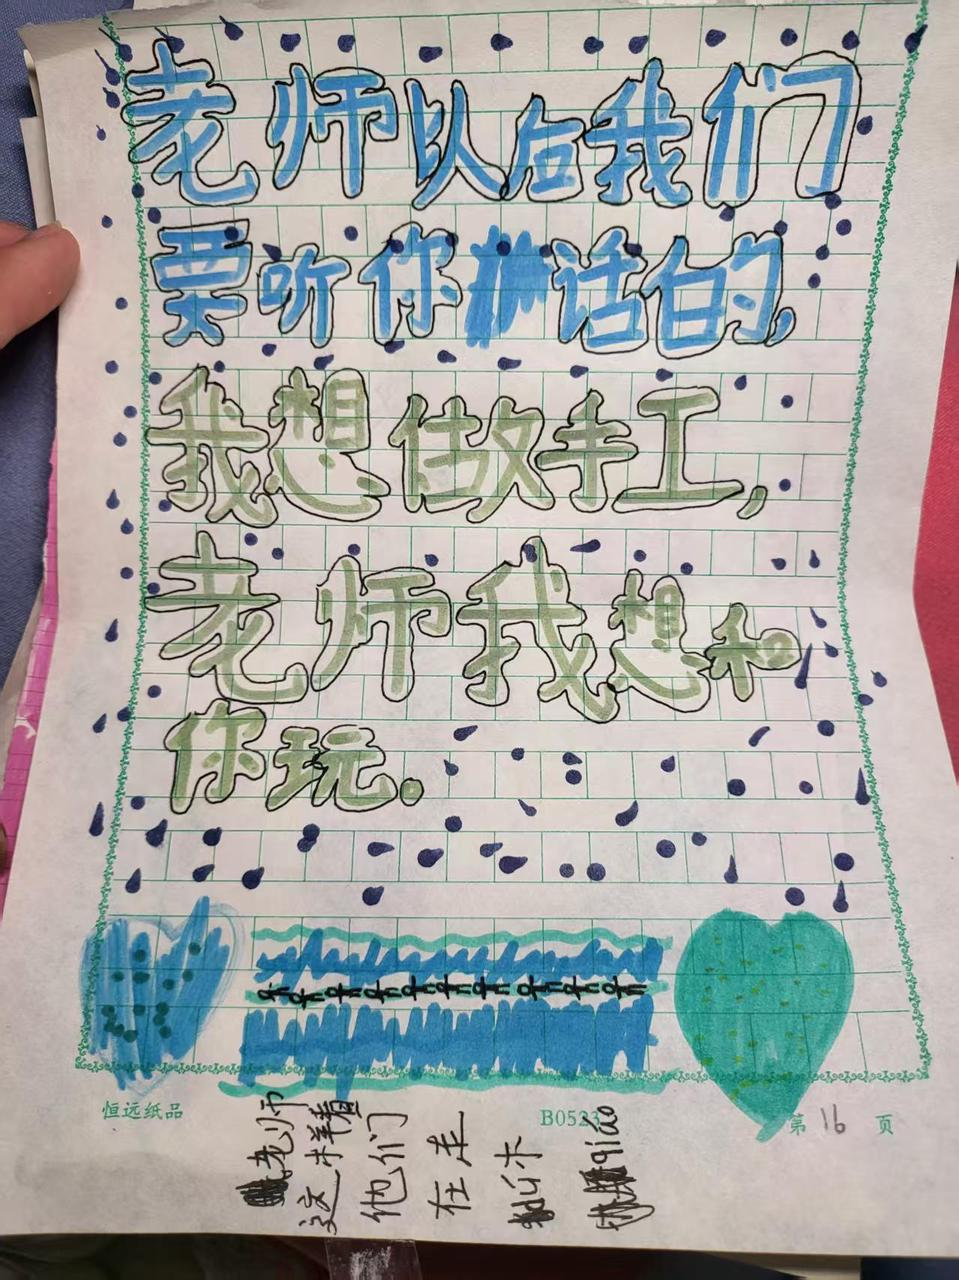 老师以后我们
要听你话的,
我想做手工,
老师我想和
你玩。
恒远纸品
B0523
第16页
老师
这样看
他们
在走
qiáo